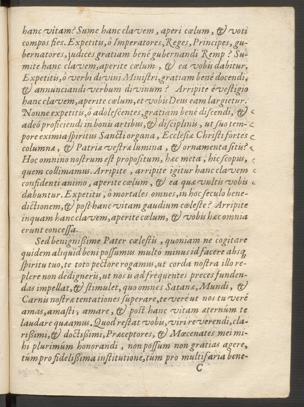 hanc vitam? Sume hanc clavem, aperi cœlum, & voti
compos fies. Expetitis, ô Imperatores, Reges, Principes, gu-
bernatores, judices gratiam benè gubernandi Remp? Su-
mite hanc clavem, aperite cœlum, & ea vobis dabitur.
Expetitis, ô verbi divini Ministri, gratiam benè docendi,
& annunciandi verbum divinum? Arripite è vestigio
hanc clavem, aperite cœlum, et vobis Deus eam largietur.
Nonne expetitis, ô adolescentes, gratiam benè discendi, &
adeò proficiendi in bonis artibus, & disciplinis, ut suo tem-
pore eximia spiritus Sancti organa, Ecclesiæ Christi fortes
columnæ, & Patriæ vestræ lumina, & ornamenta sitis?
Hoc omnino nostrum est propositum, hæc meta, hic scopus,
quem collimamus. Arripite, arripite igitur hanc clavem
confidenti animo, aperite cœlum, & ea quæ vultis vobis
dabuntur. Expetitis, ô mortales omnes, in hoc seculo bene-
dictionem, & post hanc vitam gaudium cœleste? Arripite
inquam hanc clavem, aperite cœlum, & vobis hæc omnia
erunt concessa.
Sed benignissime Pater cælestis, quoniam ne cogitare
quidem aliquid boni possumus multo minus id facere absq;
spiritu tuo, te toto pectore rogamus, ut corda nostra illo re-
plere non dedigneris, ut nos is ad frequentes preces funden-
das impellat, & stimulet, quo omnes Satanæ, Mundi, &
Carnis nostræ tentationes superare, te vere ut nos tu verè
amas, amasti, amare, & post hanc vitam æternùm te
laudare queamus. Quod restat vobis, viri reverendi, cla-
rissimi, & doctissimi, Præceptores, & Mæcenates mei mi-
hi plurimùm honorandi, non possum non gratias agere,
tùm pro fidelissima institutione, tùm pro multifaria bene-
C